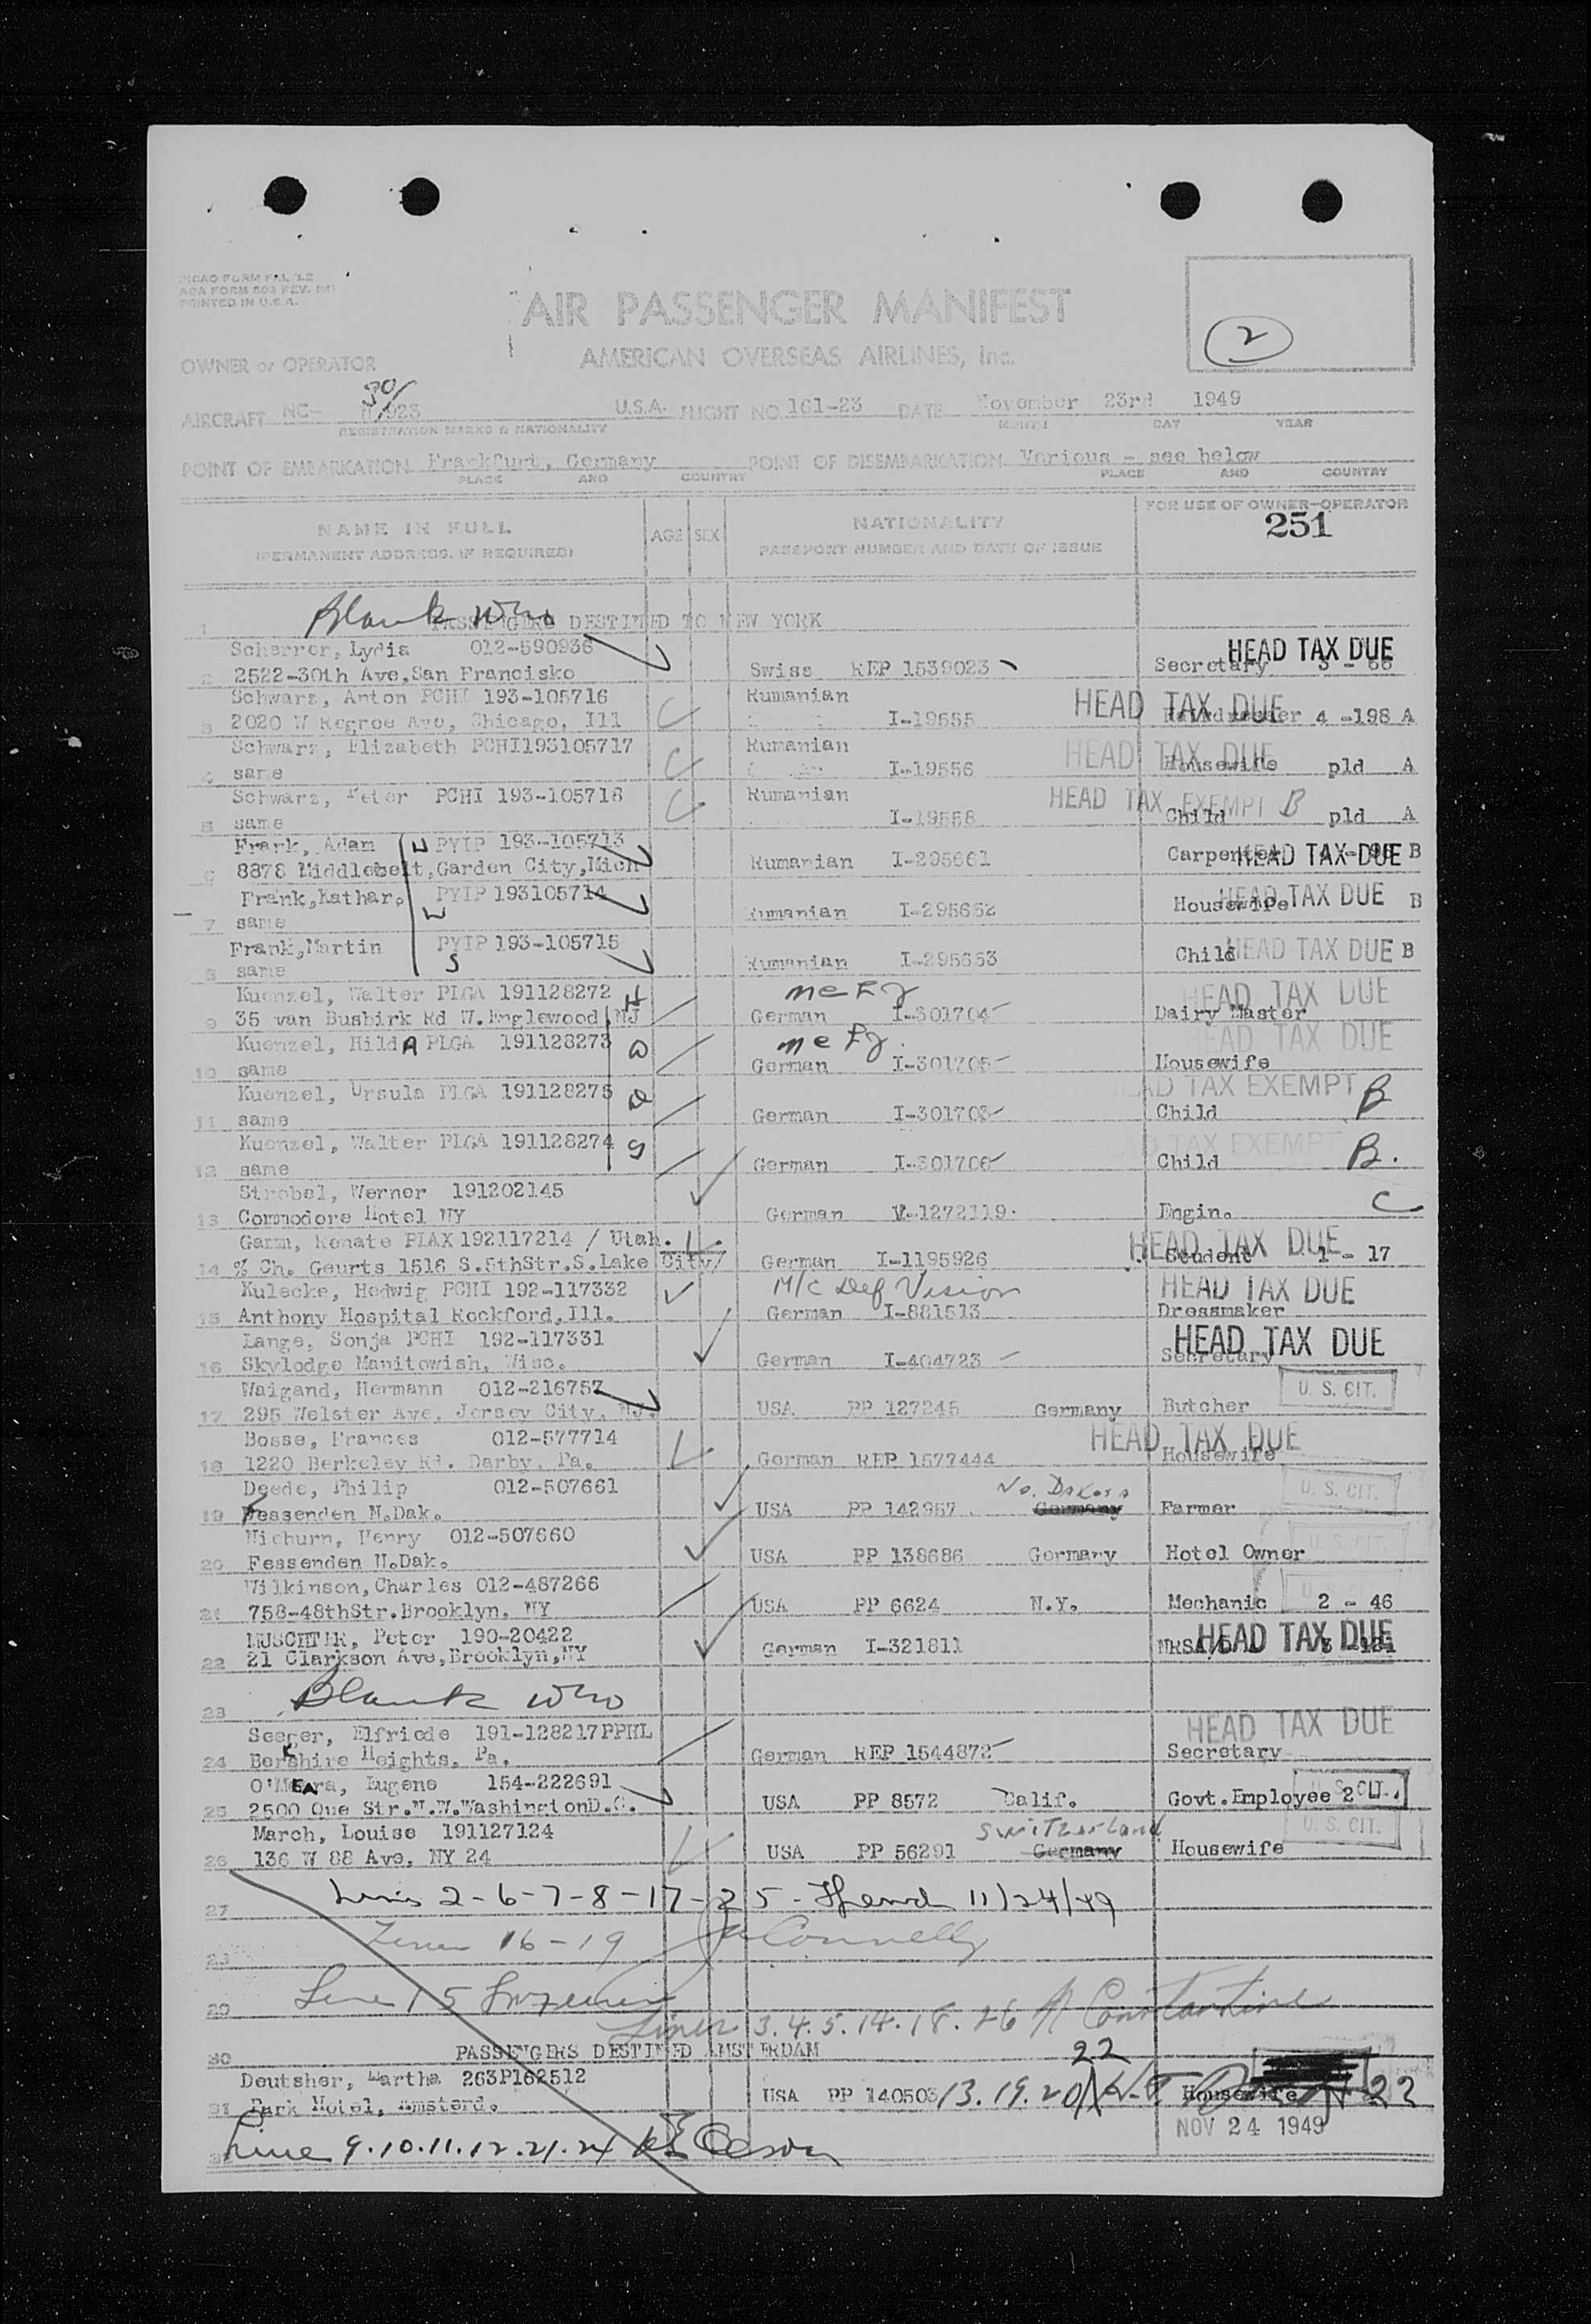 AOA FORM
PRINTED IN U.S.A.
2
AIR PASSENGER MANIFEST
OWNER or OPERATOR AMERICAN OVERSEAS AIRLINES, Inc.
AIRCRAFT NC- 923 U.S.A. FLIGHT NO. 161-23 DATE November 23rd 1949
REGISTRATION MARKS & NATIONALITY MONTH DAY YEAR
POINT OF EMBARKATION Frankfurt, Germany POINT OF DISEMBARKATION Various - see below
PLACE AND COUNTRY PLACE AND COUNTRY
NAME IN FULL AGE SEX NATIONALITY FOR USE OF OWNER-OPERATOR
(PERMANENT ADDRESS, IF REQUIRED) PASSPORT NUMBER AND DATE OF ISSUE 251
1 Blank PASSENGERS DESTINED TO NEW YORK
Scherrer, Lydia 012-590936 HEAD TAX DUE
2 2522-30th Ave,San Francisko Swiss REP 1539023 Secretary
Schwarz, Anton PCHI 193-105716 Rumanian HEAD TAX DUE
3 2020 W Ave, Chicago, Ill I-19555 4 -198 A
Schwarz, Elizabeth PCHI193105717 Rumanian HEAD TAX DUE
4 same I-19556 Housewife pld A
Schwarz, Peter PCHI 193-105718 Rumanian HEAD TAX EXEMPT B
5 same I-19558 Child pld A
Frank, Adam W PYIP 193-105713
6 8878 Middlebelt,Garden City,Mich Rumanian I-295661 Carpenter HEAD TAX DUE B
Frank,Kathar. PYIP 193105714 HEAD TAX DUE
7 same W Rumanian I-295652 Housewife B
Frank,Martin PYIP 193-105715
8 same S Rumanian I-295653 Child HEAD TAX DUE B
Kuenzel, Walter PLGA 191128272 H HEAD TAX DUE
9 35 van Busbirk Rd W.Englewood,NJ German I-301704 Dairy Master
Kuenzel, HildA PLGA 191128273 W HEAD TAX DUE
10 same German I-301705 Housewife
Kuenzel, Ursula PLGA 191128275 D HEAD TAX EXEMPT B
11 same German I-301703 Child
Kuenzel, Walter PLGA 191128274 S HEAD TAX EXEMPT B.
12 same German I-301706 Child
Strobel, Werner 191202145
13 Commodore Hotel NY German V-1272119 Engin. C
Gamm, Renate PIAX 192117214 / Utah. HEAD TAX DUE
14 % Ch. Geurts 1516 S.5thStr.S.Lake City/ German I-1195926 Student 1 - 17
Kulecke, Hedwig PCHI 192-117332 M/C Def Vision HEAD TAX DUE
15 Anthony Hospital Rockford,Ill. German I-881513 Dressmaker
Lange, Sonja PCHI 192-117331 HEAD TAX DUE
16 Skylodge Manitowish, Wisc. German I-404723 Secretary
Waigand, Hermann 012-216757 U. S. CIT.
17 295 Welster Ave, Jersey City, NJ. USA PP 127245 Germany Butcher
Bosse, Frances 012-577714 HEAD TAX DUE
18 1220 Berkeley Rd. Darby, Pa. German REP 1577444 Housewife
Deede, Philip 012-507661 No. Dakota U. S. CIT.
19 Fessenden N.Dak. USA PP 142967 Germany Farmer
Wieburn, Henry 012-507660 U. S. CIT.
20 Fessenden N.Dak. USA PP 138686 Germany Hotel Owner
Wilkinson,Charles 012-487266
21 758-48thStr.Brooklyn, NY USA PP 6624 N.Y. Mechanic 2 - 46
MUSCHTER, Peter 190-20422 HEAD TAX DUE
22 21 Clarkson Ave,Brooklyn,NY German I-321811
23 Blank
Seeger, Elfriede 191-128217PPHL HEAD TAX DUE
24 Berkshire Heights, Pa. German REP 1544872 Secretary
O'MEAra, Eugene 154-222691 U. S. CIT.
25 2500 Que Str.N.W.WashingtonD.C. USA PP 8572 Calif. Govt.Employee 2
March, Louise 191127124 Switzerland U. S. CIT.
26 136 W 88 Ave, NY 24 USA PP 56291 Germany Housewife
27 Lines 2-6-7-8-17-25 - 11/24/49
28 Lines 16-19 Connelly
29 Line 15
Lines 3.4.5.14.18.26 Constantine
30 PASSENGERS DESTINED AMSTERDAM 22
Deutsher, Martha 263P162512
31 Park Hotel, Amsterd. USA PP 140503 13.19.20 Housewife 22
NOV 24 1949
Line 9.10.11.12.21.24